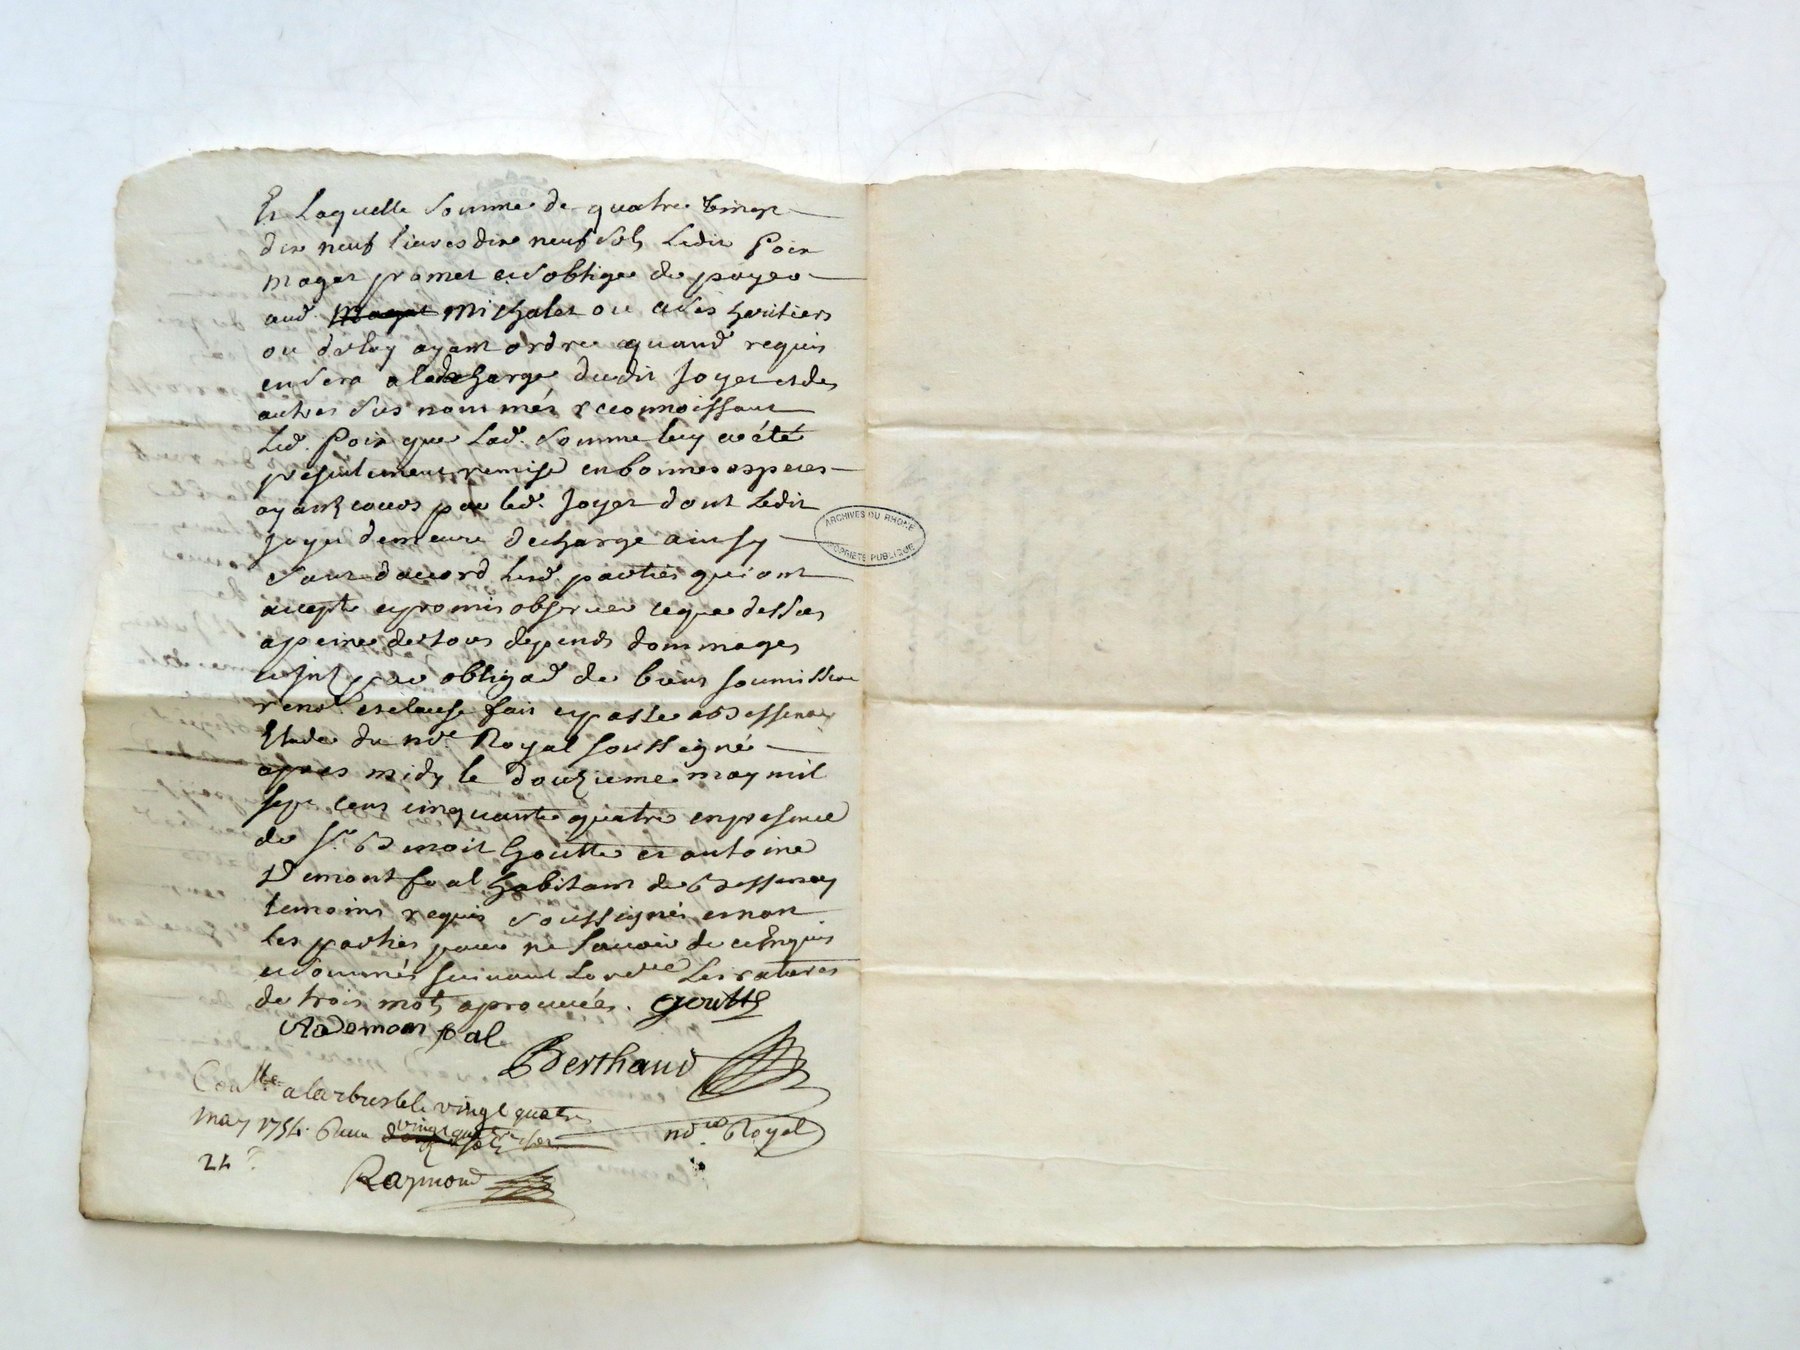 Et Laquelle somme de quatre vingt
dix neuf livres dix neuf sols Ledit Poix
maget promet et soblige de payer
aud. Maget Michalet ou a ses heritiers
ou de luy ayant ordre quand requis
en sera a la decharge dudit Joyet et des
autres sus nommés reconnoissant
Led. Poix que Lad. somme luy a été
presentement remise en bonnes especes
ayant cours par led. Joyet dont Ledit
Joyet demeure decharge ainsy
sont daccord Lesd. parties qui ont
accepté et promis observer ce que dessus
a peine de tous depends dommages
et jnt par obligaõn de biens soumission
renon. et clause fait et passé a Bessenay
Etude du nore Royal soussigné
apres midy le douzieme may mil
sept cent cinquante quatre en presence
de Sr. Benoit Goutte et antoine
Demontfoal habitant de Bessenay
temoins requis soussignés et non
les parties pour ne sçavoir de ce Enquis
et sommés suivant Lordce Les ratures
de trois mots aprouvées. goutte
A Demonfoal
Berthaud
Conlle a larbresle le vingt quatre
may 1754. Reçu vingt quatre
nore Royal
24 s
Raymond
ARCHIVES DU RHONE
PROPRIETE PUBLIQUE